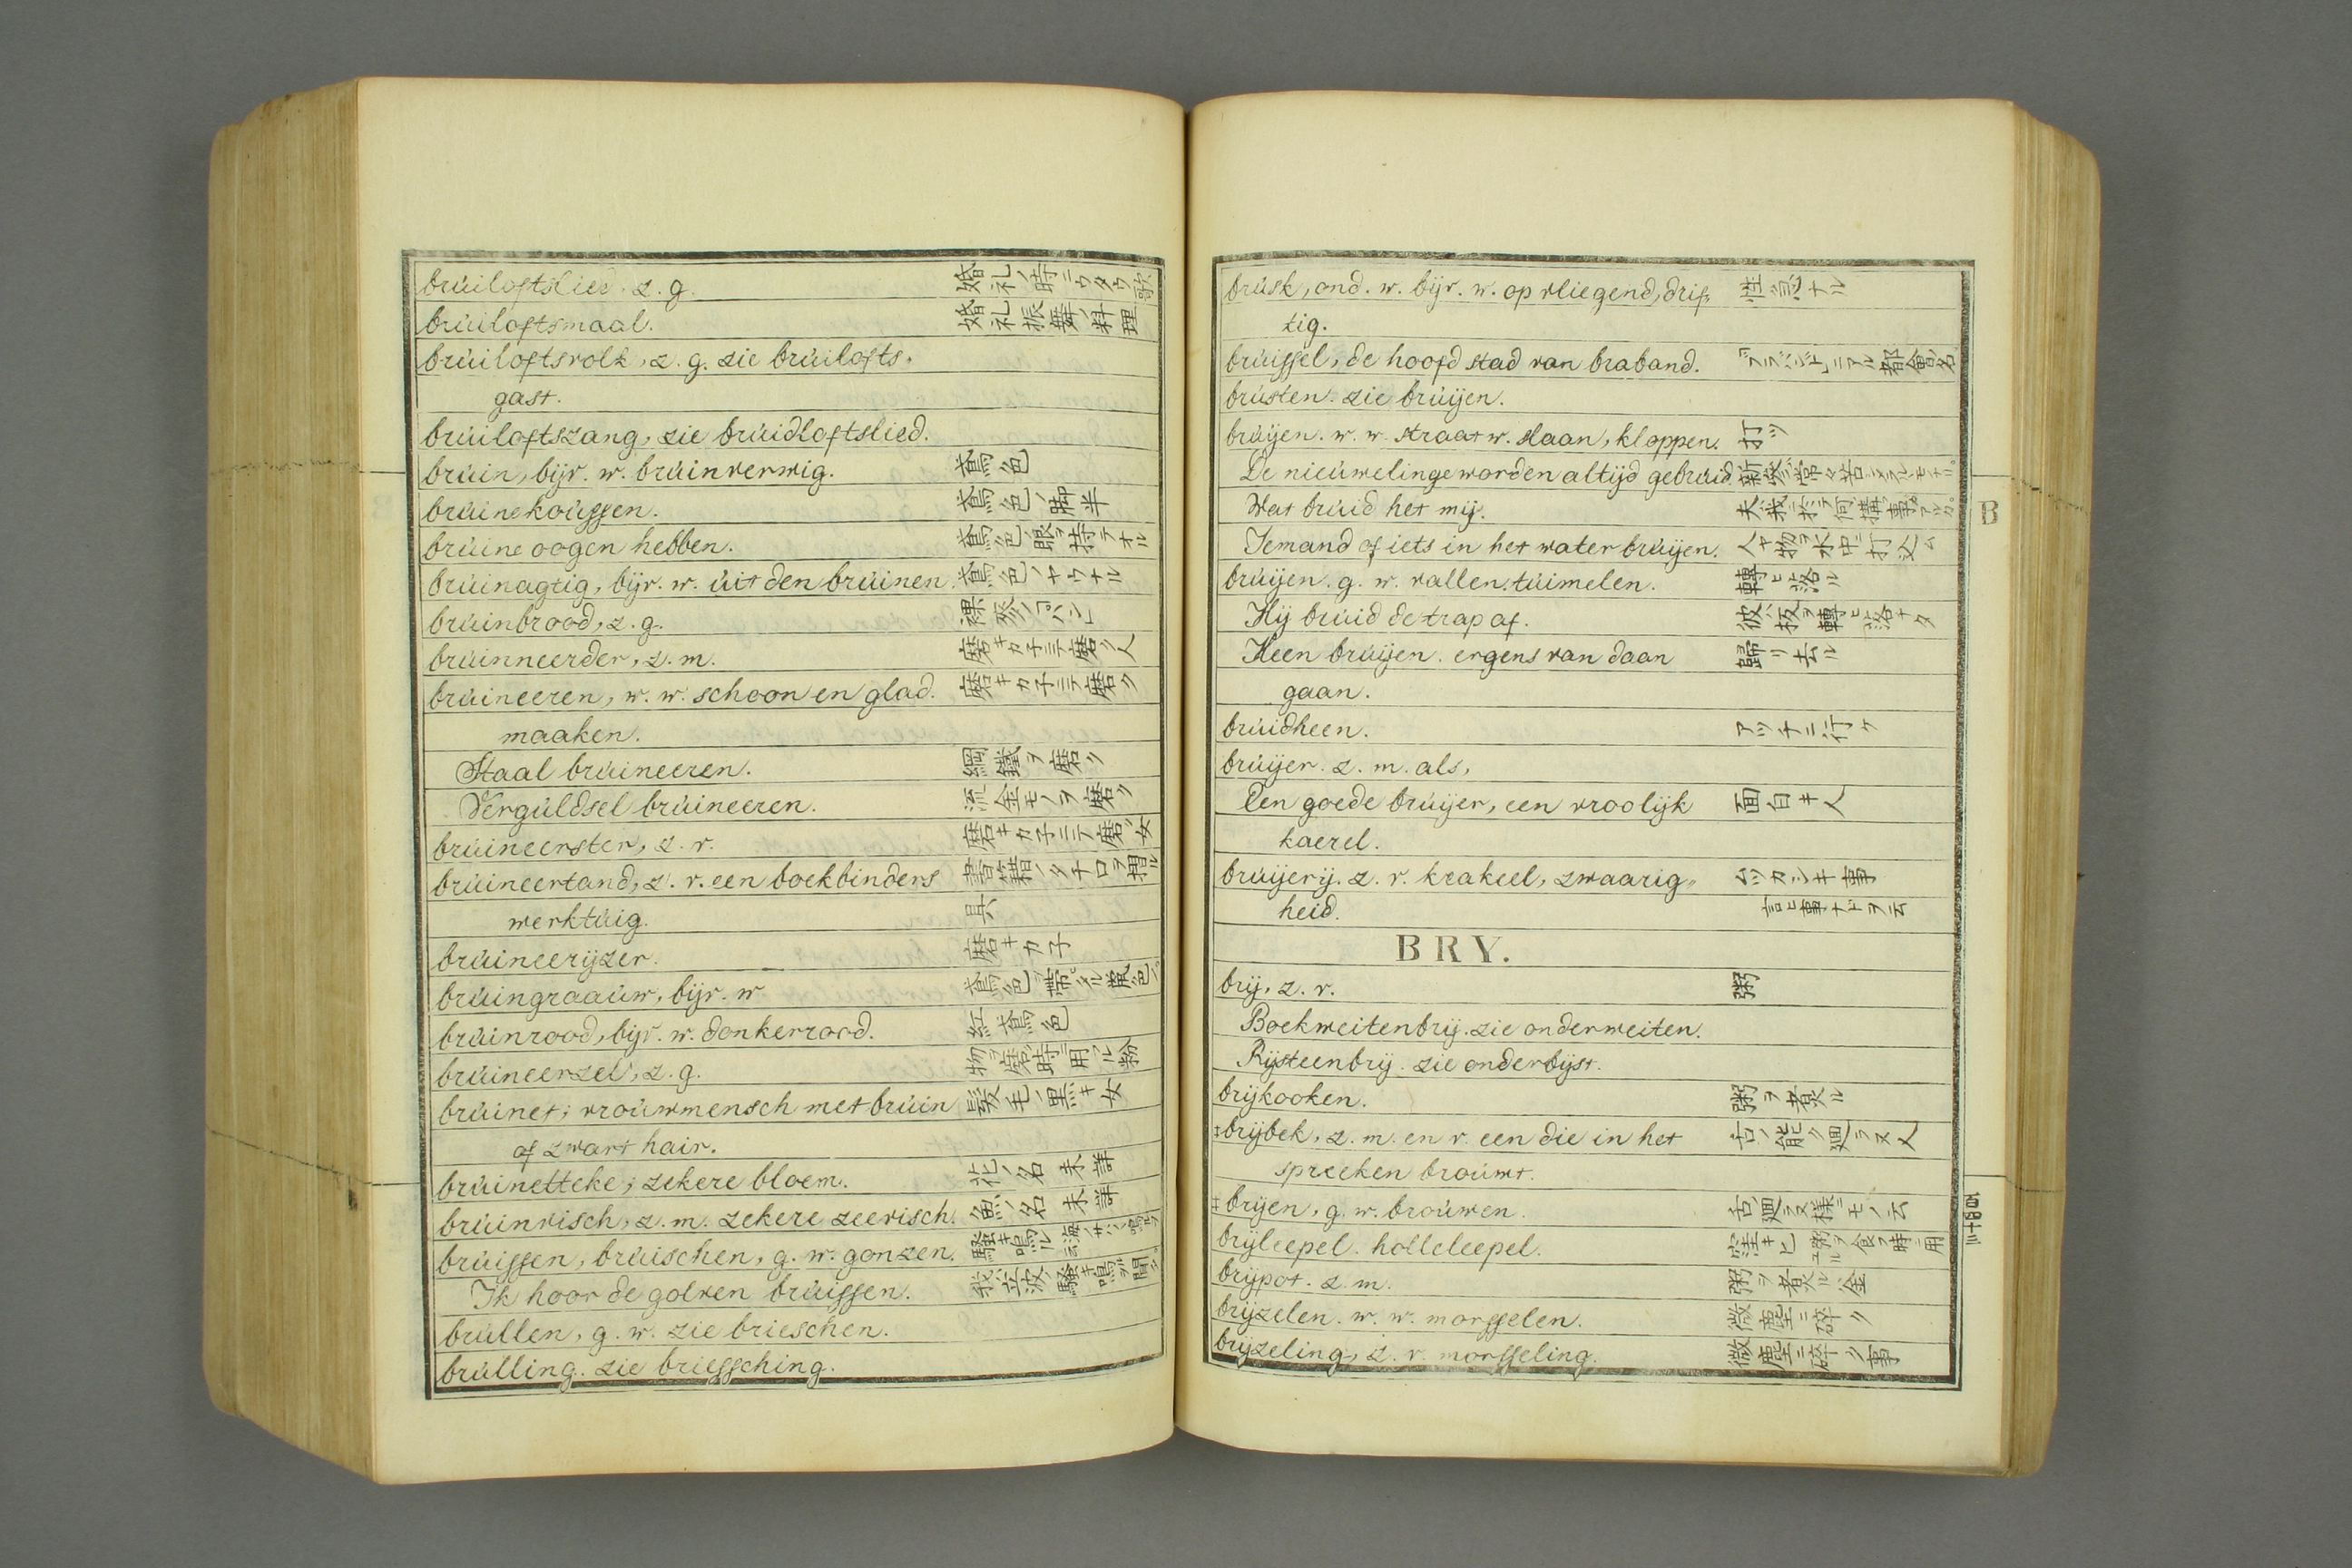 brúiloftslied. z. g. 婚礼ノ時ニウタウ歌
brúiloftsmaal. 婚礼振舞ノ料理
brúiloftsvolk, z. g. zie brúilofts.
gast.
brúiloftszang, zie brúidloftslied.
brúin, bijv. w. brúinverwig. 鳶色
brúinekoússen. 鳶色ノ脚半
brúine oogen hebben. 鳶色ノ眼ヲ持テオル
brúinagtig, bijv. w. úit den brúinen. 鳶色ノヤウナル
brúinbrood, z. g. 裸麥ノパン
brúinneerder, z. m. 磨キカ子ニテ磨ク人
brúineeren, w. w. schoon en glad. 磨キカ子ニテ磨ク
maaken.
Staal brúineeren. 綱鐵ヲ磨ク
Vergúldsel brúineeren. 流金モノヲ磨ク
brúineerster, z. v. 磨キカ子ニテ磨ク女
brúineertand, z. v. een boekbinders 書籍ノタチ口ヲ摺ル
werktúig. 具
brúineerijzer. 磨キカ子
brúingraaúw, bijv. w 鳶色ヲ帯タル
brúinrood, bijv. w. donkerrood. 紅鳶色
brúineerzel, z. g. 物ヲ磨ク時ニ用ル粉
brúinet; vroúwmensch met brúin 髪毛ノ黒キ女
of zwart hair.
brúinetteke; zekere bloem. 花ノ名 未詳
brúinvisch, z. m. zekere zeevisch. 魚ノ名 未詳
brúissen, brúischen, g. w. gonzen. 騒キ鳴ル
Ik hoor de golven brúissen. 我立波ノ騒キ鳴ルヲ聞ク
brúllen, g. w. zie brieschen.
brúlling. zie briessching.
brúsk, ond. w. bijv. w. op vliegend, drif, 性急ナル
tig.
brússel, de hoofd stad van braband. 「ブラバンド」ニアル都會ノ名
brústen. zie brúijen.
brúijen. w. w. straat w. slaan, kloppen. 打ツ
De nieúwelinge worden altijd gebrúid.
Wat brúid het mij.
Iemand of iets in het water brúijen. 人ヤ物ヲ水中ニ打込ム
brúijen. g. w. vallen. túimelen. 轉ヒ落ル
Hij brúid de trap af. 彼ハ坂ヲ轉ヒ落ナタ
Heen brúijen. ergens van daan 歸リ去ル
gaan.
brúidheen. アツチニ行ケ
brúijer. z. m. als,
Een goede brúijer, een vroolijk 面白キ人
kaerel.
brúijerij. z. v. krakeel, zwaarig,, ムツカシキ事
heid. 言ヒ事ナドヲ云
BRY.
brij, z. v. 粥
Boekweitenbrij. zie onder weiten.
Rijsteenbrij. zie onder bijst.
brijkooken. 粥ヲ煮ル
‡brijbek, z. m. en v. een die in het 舌ノ能ク廻ラヌ人
spreeken broúwt.
‡brijen, g. w. broúwen. 舌ノ廻ラヌ様ニモノ云
brijleepel. holleleepel.
brijpot. z. m. 粥ヲ煮ル釜
brijzelen. w. w. morsselen. 微塵ニ碎ク
brijzeling, z. v. morsseling. 微塵ニ碎ク事
B
百四十三